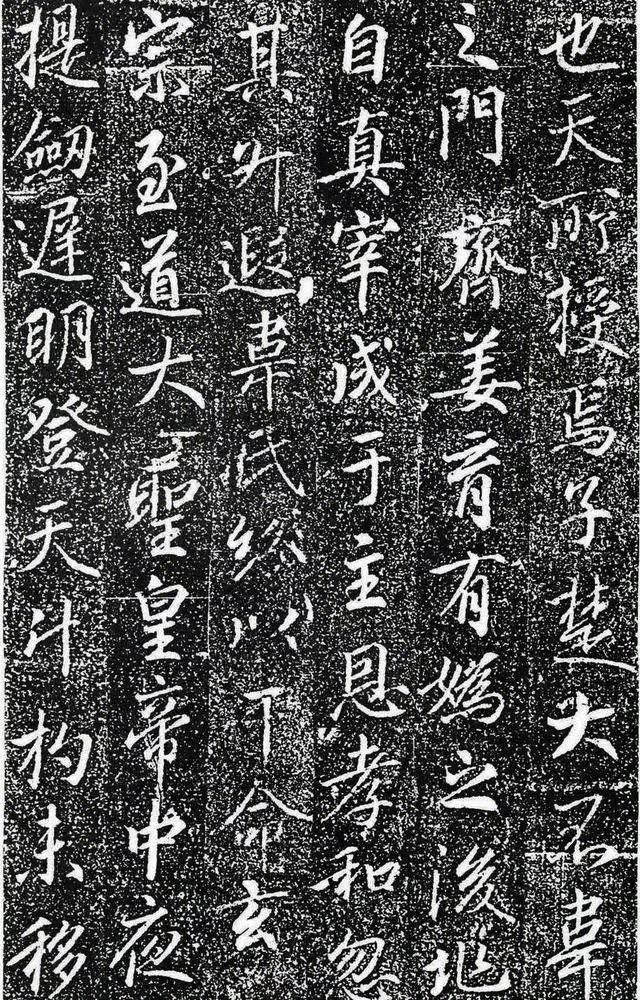 也天所授焉子楚大不韋
之門齊姜育有媯之後
自真宰成于主恩孝和忽
其升遐韋氏紛以干命玄
宗至道大聖皇帝中夜
提劒遲明登天斗杓未移